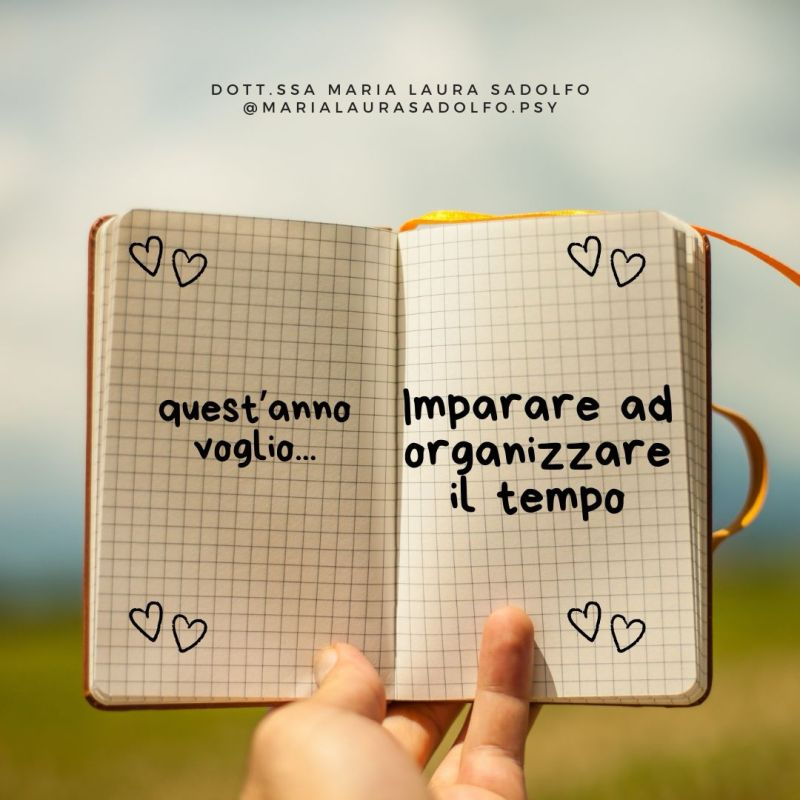 DOTT.SSA MARIA LAURA SADOLFO
@MARIALAURASADOLFO.PSY
quest'anno
voglio...
Imparare ad
organizzare
il tempo